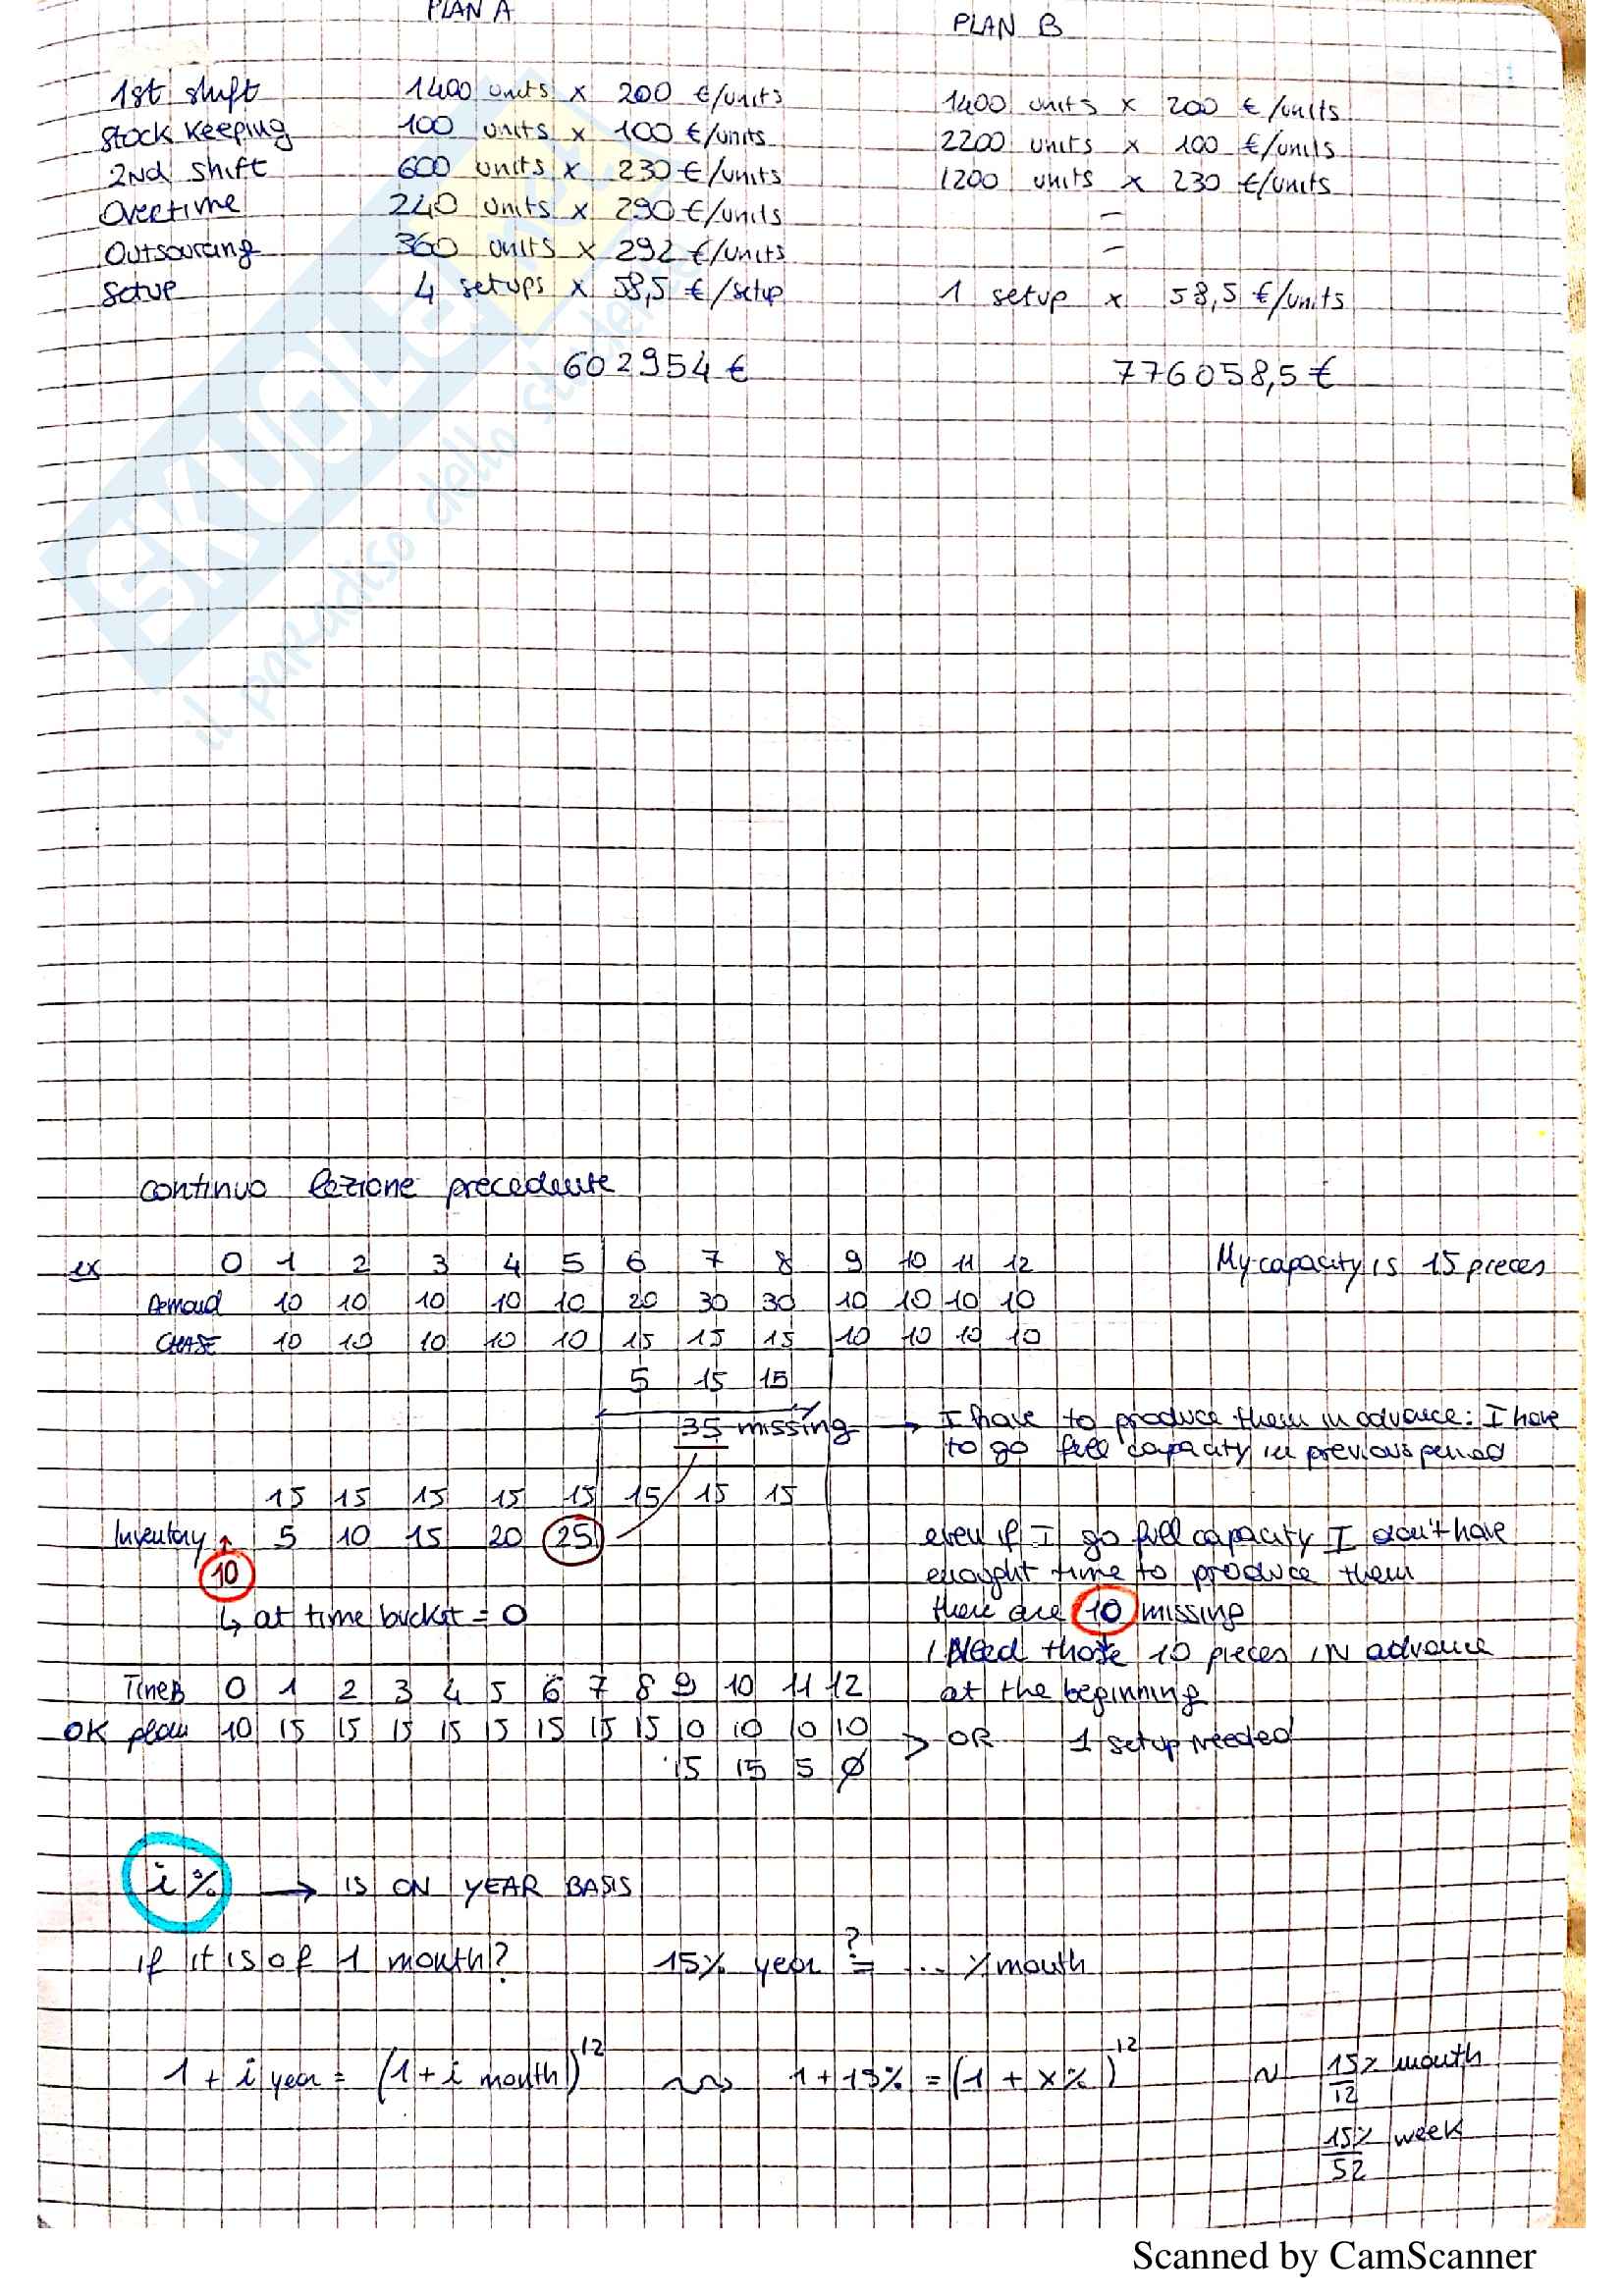 PLAN A PLAN B
1st shift 1400 units x 200 €/units 1400 units x 200 €/units
Stock Keeping 100 units x 100 €/units 2200 units x 100 €/units
2nd shift 600 units x 230 €/units 1200 units x 230 €/units
Overtime 240 units x 290 €/units –
Outsourcing 360 units x 292 €/units –
Setup 4 setups x 58,5 €/setup 1 setup x 58,5 €/units
602954 € 776058,5 €
SKUOLA.net
il paradiso dello studente
continuo lezione precedente
ex 0 1 2 3 4 5 6 7 8 9 10 11 12 My capacity is 15 pieces
Demand 10 10 10 10 10 20 30 30 10 10 10 10
CHASE 10 10 10 10 10 15 15 15 10 10 10 10
5 15 15
35 missing → I have to produce them in advance: I have
to go full capacity in previous period
15 15 15 15 15 15 15 15
Inventory ↑ 5 10 15 20 25 even if I go full capacity I don't have
10 enought time to produce them
↳ at time bucket = 0 there are 10 missing
I Need those 10 pieces IN advance
TimeB 0 1 2 3 4 5 6 7 8 9 10 11 12 at the beginning
OK plan 10 15 15 15 15 15 15 15 15 10 10 10 10 > OR 1 setup needed
15 15 5 Ø
i % → IS ON YEAR BASIS
if it is of 1 month? 15% year ?= ... % month
1 + i year = (1 + i month)^12 ~~> 1 + 15% = (1 + x%)^12 ~ 15%/12 month
15%/52 week
Scanned by CamScanner